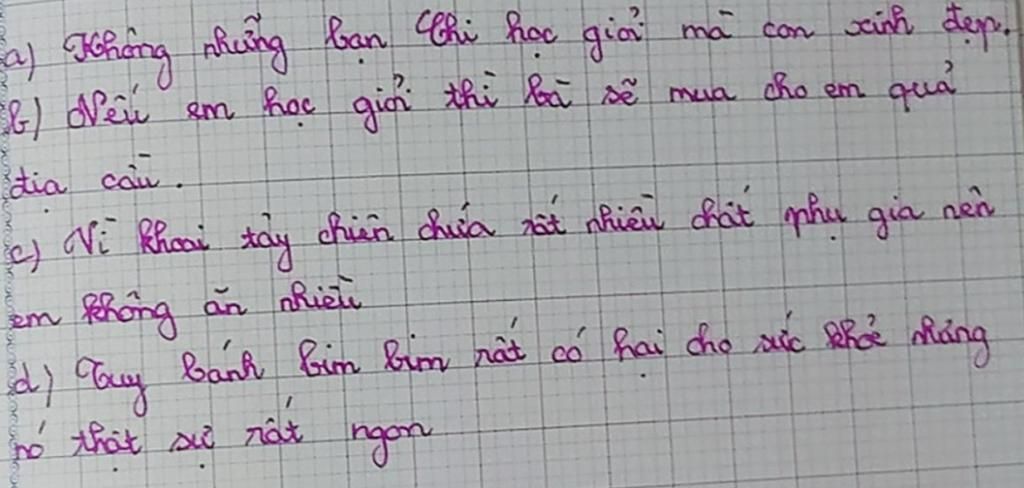 a) Không những bạn Chi học giỏi mà con xinh đẹp.
b) Nếu em học giỏi thì bà sẽ mua cho em quả
địa cầu.
c) Vì khoai tây chiên chứa rất nhiều chất phụ gia nên
em không ăn nhiều
d) Tuy bánh bim bim rất có hại cho sức khoẻ nhưng
nó thật sự rất ngon